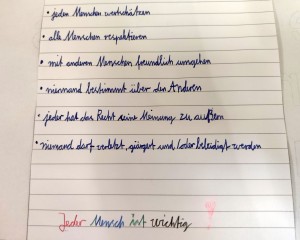 • jeden Menschen wertschätzen
• alle Menschen respektieren
• mit anderen Menschen freundlich umgehen
• niemand bestimmt über den Anderen
• jeder hat das Recht seine Meinung zu äußern
• niemand darf verletzt, geärgert und/oder beleidigt werden
Jeder Mensch ist wichtig !